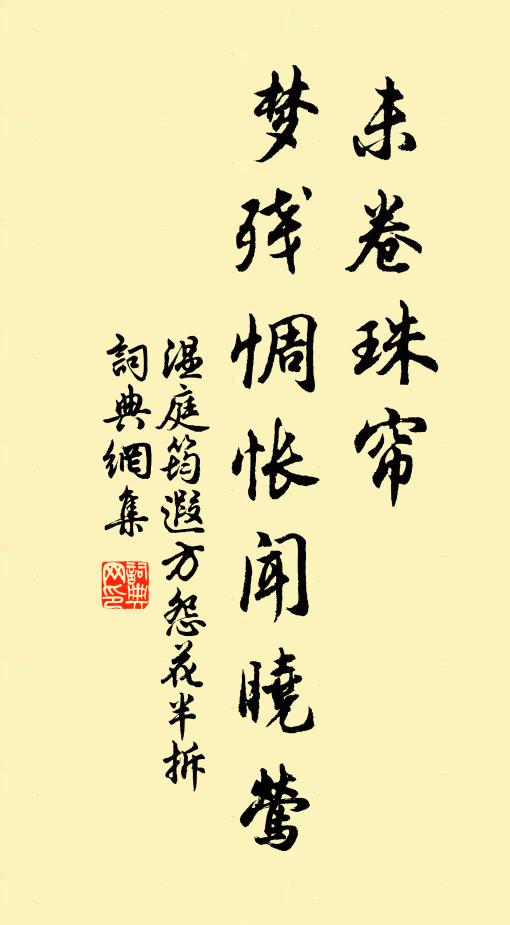 未卷珠帘
梦残惆怅闻晓莺
温庭筠遐方怨花半拆
詞典網集
詞典网印